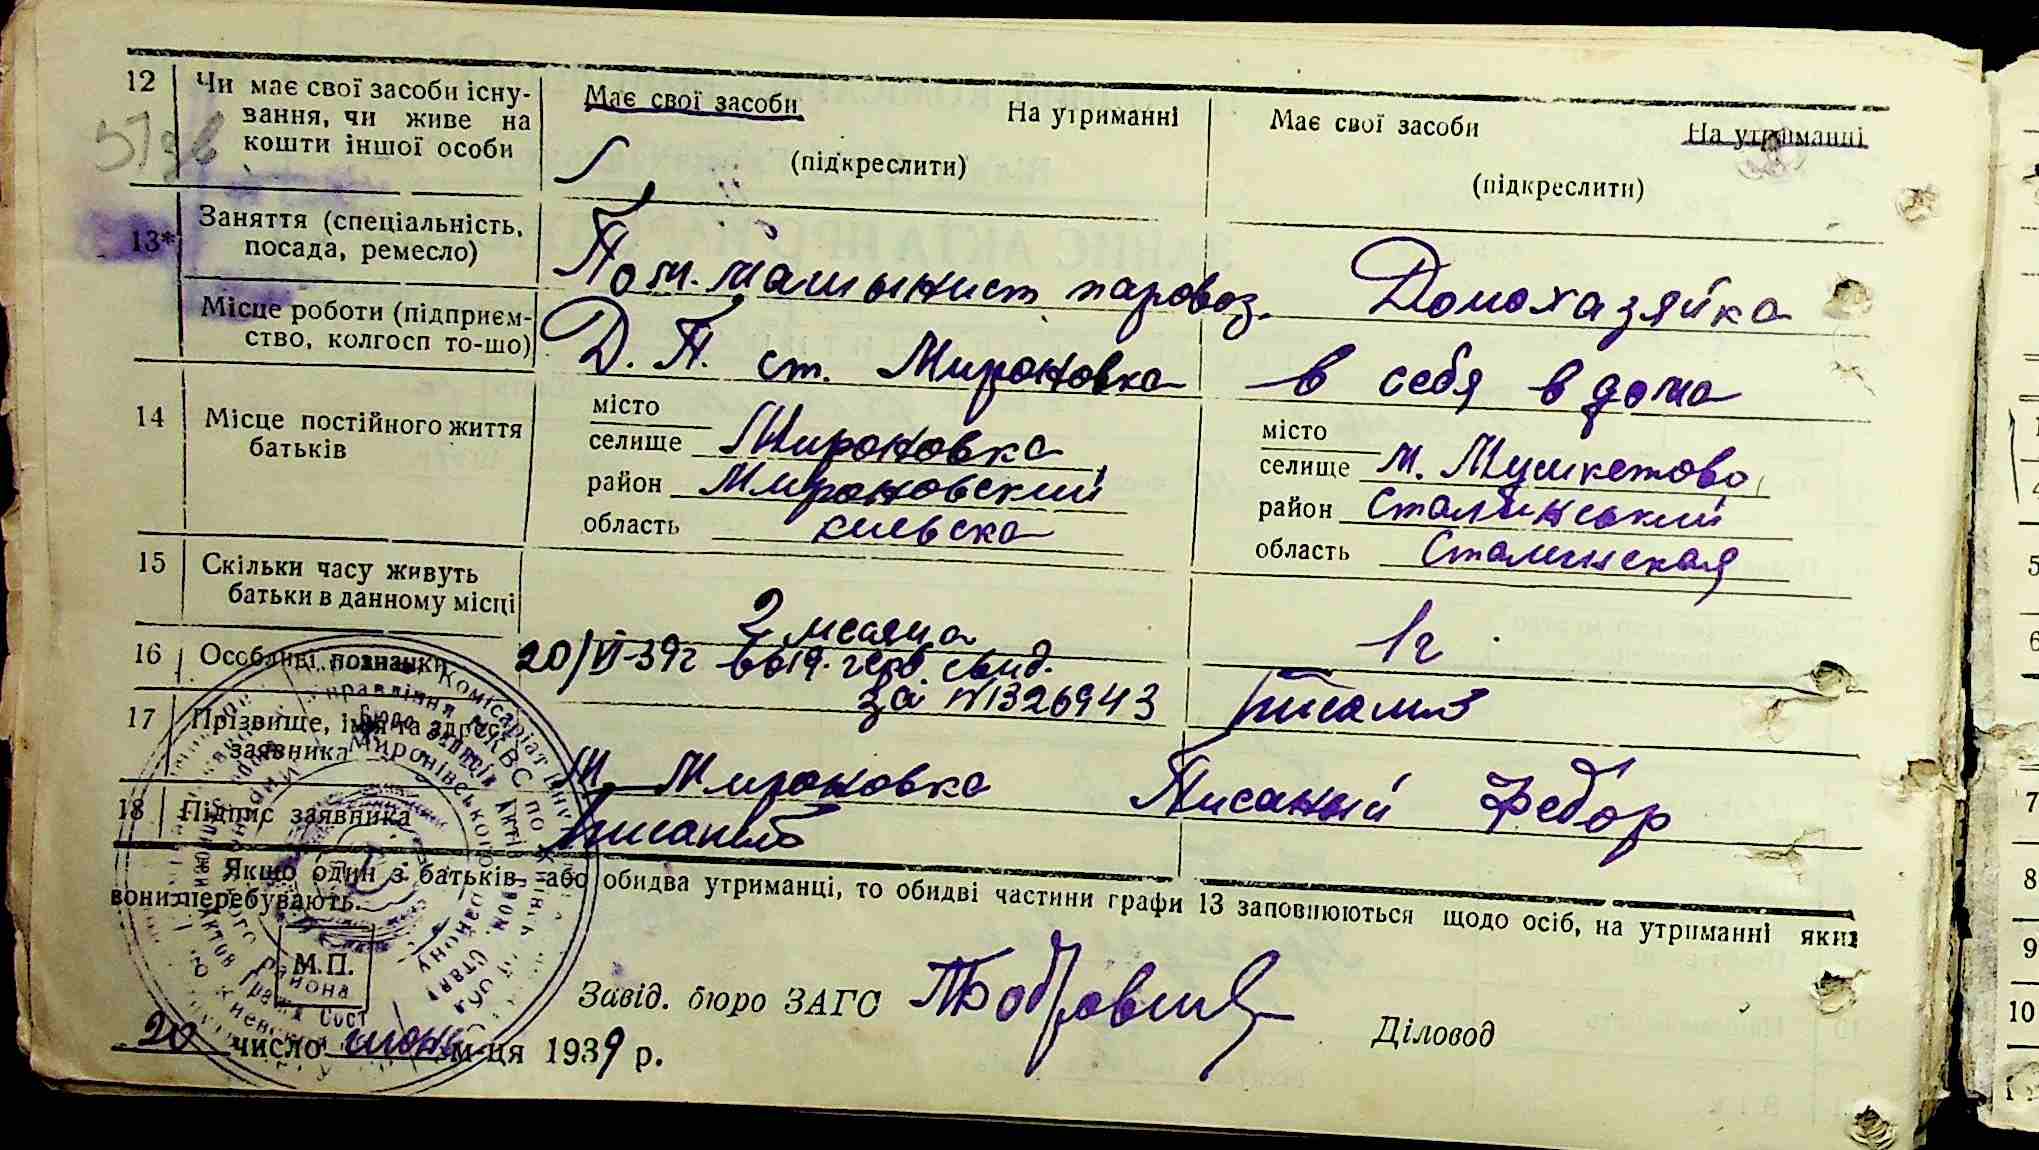 12 Чи має свої засоби існу-
вання, чи живе на
кошти іншої особи
Має свої засоби На утриманні
(підкреслити)
Має свої засоби На утриманні
(підкреслити)
13* Заняття (спеціальність,
посада, ремесло)
Пом. машынист паровоз. Домохазяйка
Місце роботи (підприєм-
ство, колгосп то-що)
Д. П. ст. Мироновка в себя в дома
14 Місце постійного життя
батьків
місто
селище Мироновка
район Мироновский
область киевска
місто
селище м. Мушкетово
район Сталинський
область Сталинская
15 Скільки часу живуть
батьки в данному місці
2 месяца 1 г
16 Особливі познаки
20/VI-39г выд. герб. свид.
за №1326943
17 Прізвище, ім'я та адреса
заявника
М. Мироновка Писаный Федор
18 Підпис заявника
Якщо один з батьків або обидва утриманці, то обидві частини графи 13 заповнюються щодо осіб, на утриманні яких
вони перебувають.
М.П.
Завід. бюро ЗАГС
Діловод
20 число июня м-ця 1939 р.
5
6
7
8
9
10